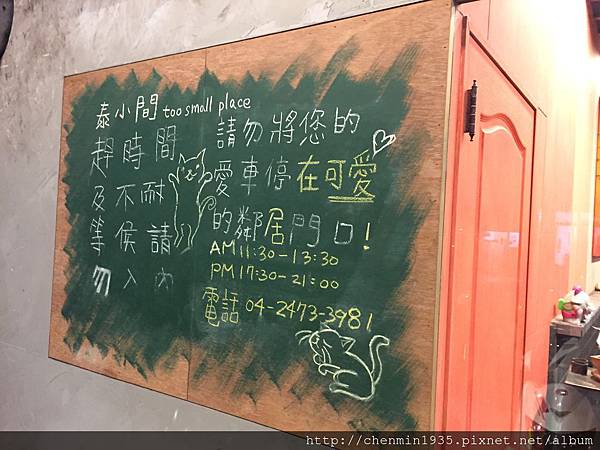 泰小間 too small place
趕時間
及不耐
等候請
勿入內
請勿將您的
愛車停在可愛
的鄰居門口!
AM 11:30-13:30
PM 17:30-21:00
電話 04-2473-3981
http://chenmin1935.pixnet.net/album